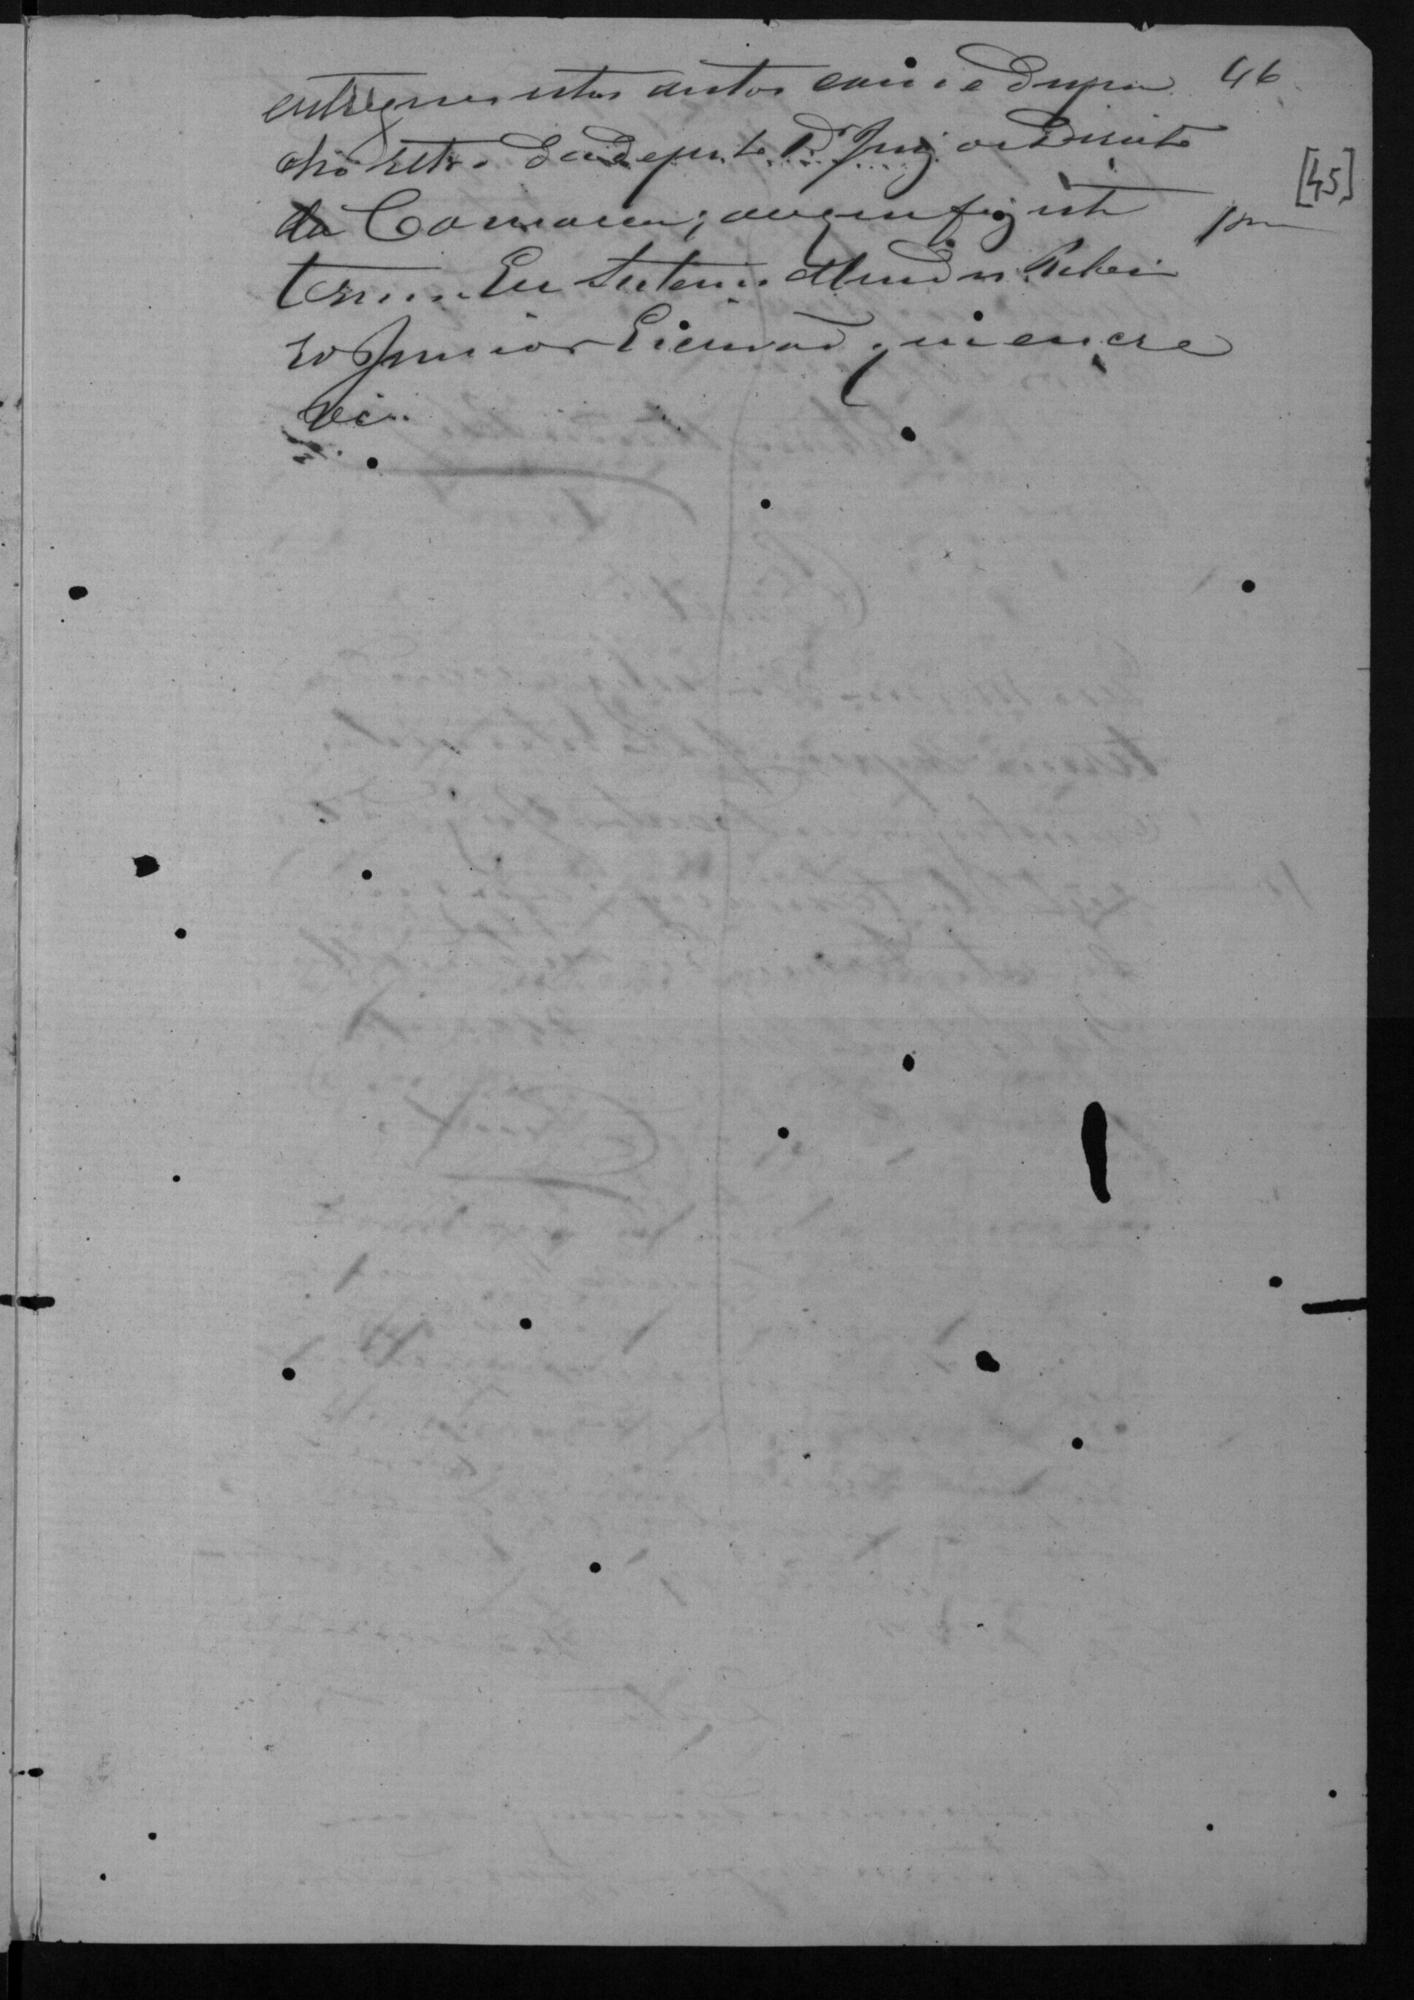 46
entregues estes autos com o Despa
cho retro do Dr Juiz de Direito
[45]
da Comarca; do que fiz este
termo. Eu Mendes Ribei
ro Junior Escrivão, que escre
vi.